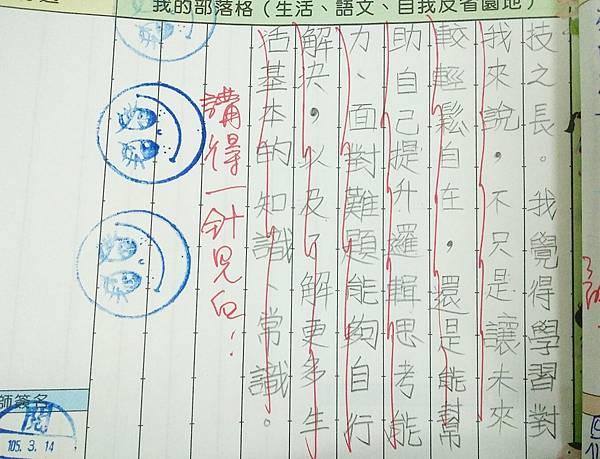 我的部落格(生活、語文、自我反省園地)
技之長。我覺得學習對
我來說，不只是讓未來
較輕鬆自在，還是能幫
助自己提升邏輯思考能
力、面對難題能夠自行
解決，以及了解更多生
活基本的知識、常識。
講得一針見血！
師簽名
閱
105. 3. 14